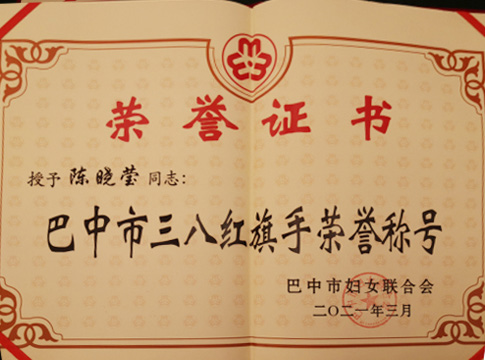 荣誉证书
授予 陈晓莹 同志:
巴中市三八红旗手荣誉称号
巴中市妇女联合会
二〇二一年三月